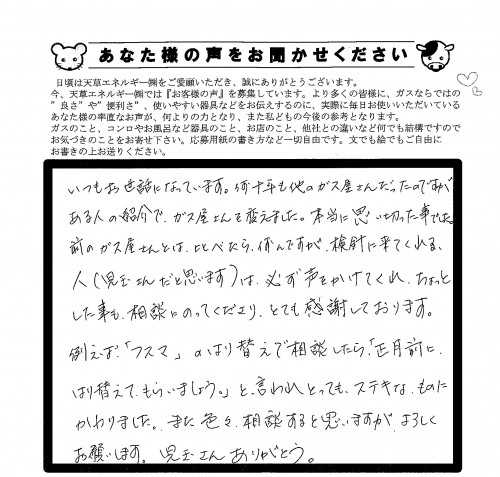 あなた様の声をお聞かせください
日頃は天草エネルギー㈱をご愛顧いただき、誠にありがとうございます。
今、天草エネルギー㈱では『お客様の声』を募集しています。より多くの皆様に、ガスならではの
”良さ”や”便利さ”、使いやすい器具などをお伝えするのに、実際に毎日お使いいただいている
あなた様の率直なお声が、何よりの力となり、また私どもの今後の参考となります。
ガスのこと、コンロやお風呂など器具のこと、お店のこと、他社との違いなど何でも結構ですので
お気づきのことをお寄せ下さい。応募用紙の書き方など一切自由です。文でも絵でもご自由に
お書きの上お送りください。
いつもお世話になっています。何十年も他のガス屋さんだったのですが
ある人の紹介で、ガス屋さんを変えました。本当に思い切った事でした。
前のガス屋さんとは、比べたら、何んですが、検針に来てくれる、
人(児玉さんだと思います)は、必ず声をかけてくれ、ちょっと
した事も、相談にのってくださり、とても感謝しております。
例えば、「フスマ」のはり替えで相談したら、「正月前に、
はり替えてもらいましょう。」と、言われとっても、ステキな、ものに
かわりました。また色々、相談すると思いますが、よろしく
お願いします。児玉さんありがとう。